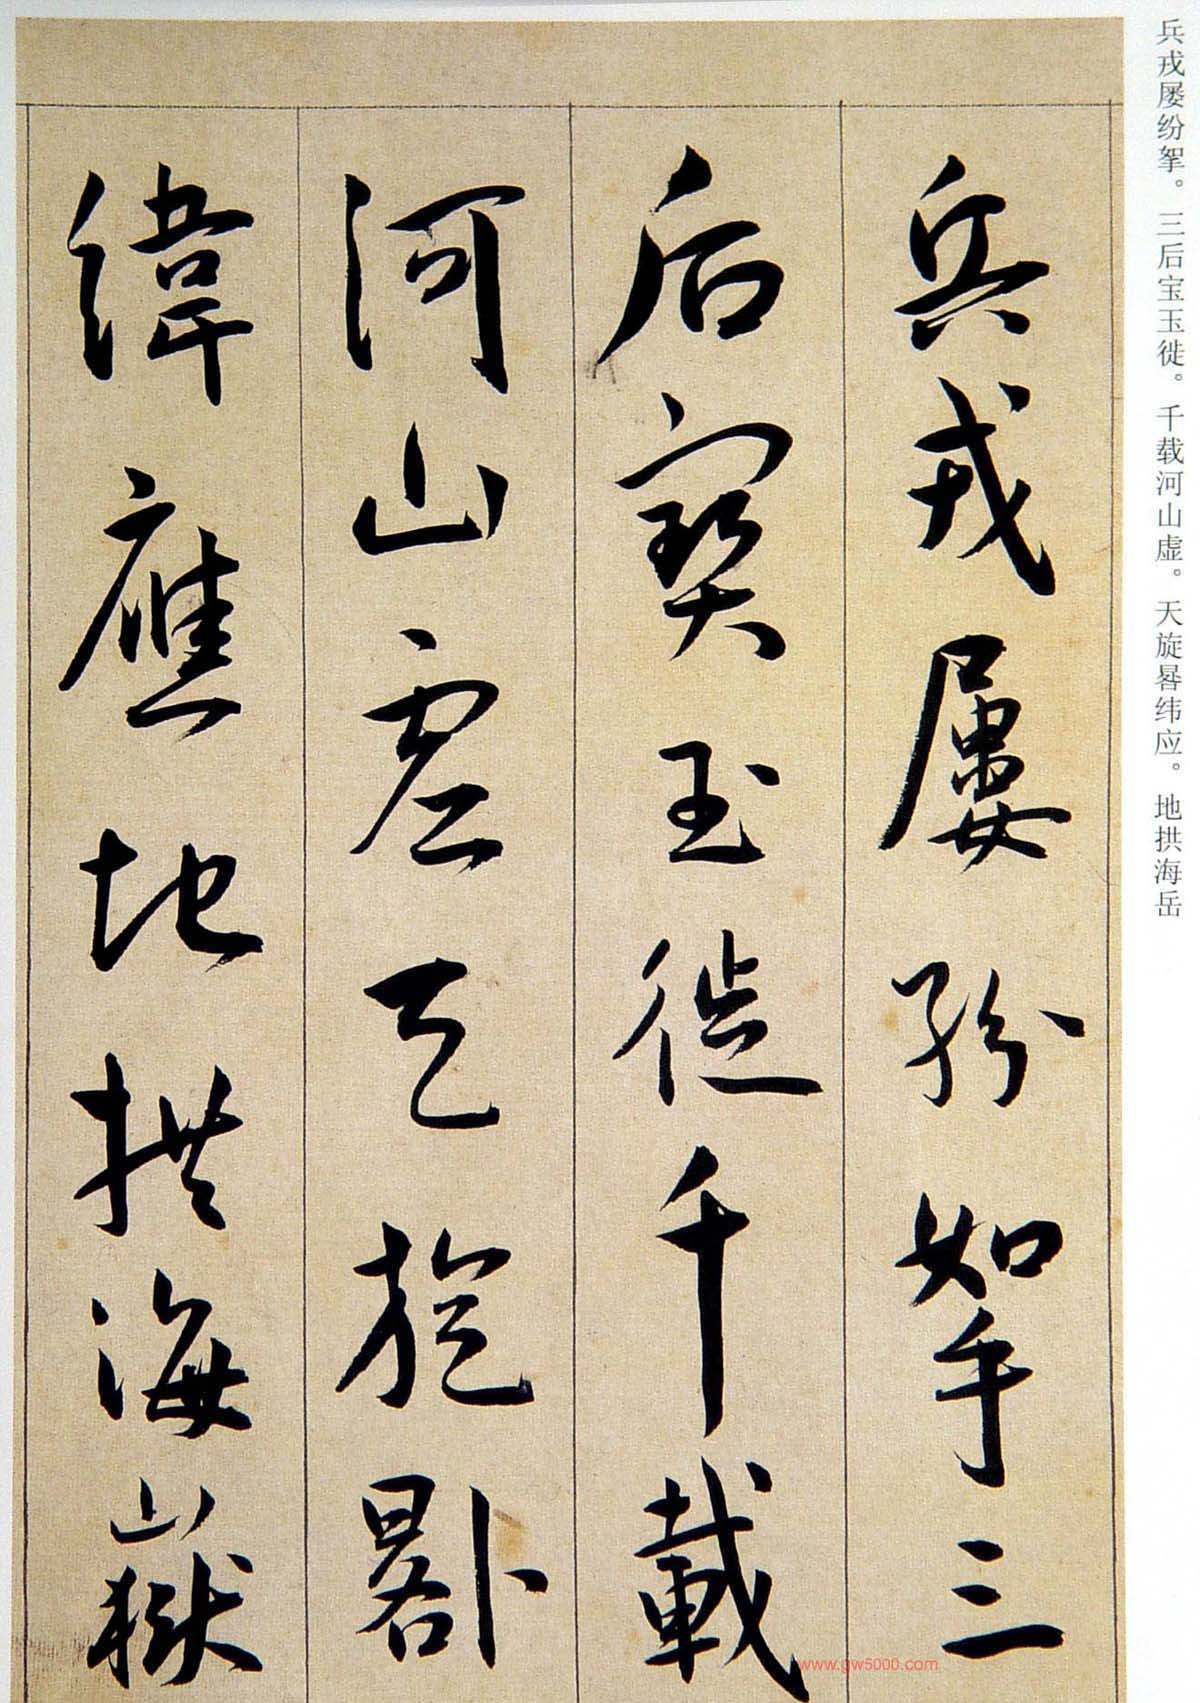 兵戎屡纷挐。三后宝玉徙。千载河山虚。天旋晷纬应。地拱海岳
兵戎屢紛挐三
后寶玉徙千載
河山虛天旋晷
緯應地拱海嶽
www.gw5000.com